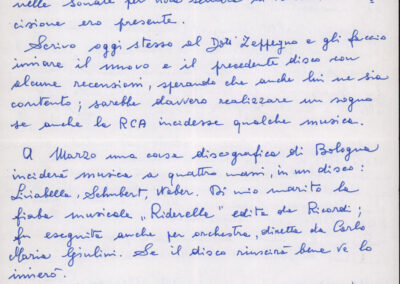 nelle sonate per
cisione ero presente.
Scrivo oggi stesso al Dott. Zeppegno e gli faccio
inviare il nuovo e il precedente disco con
alcune recensioni, sperando che anche lui ne sia
contento; sarebbe davvero realizzare un sogno
se anche la RCA incidesse qualche musica.
A Marzo una casa discografica di Bologna
inciderà musica a quattro mani, in un disco:
Liviabella, Schubert, Weber. Di mio marito la
fiaba musicale "Riderella" edita da Ricordi;
fu eseguita anche per orchestra, diretta da Carlo
Maria Giulini. Se il disco riuscirà bene ve lo
invierò.